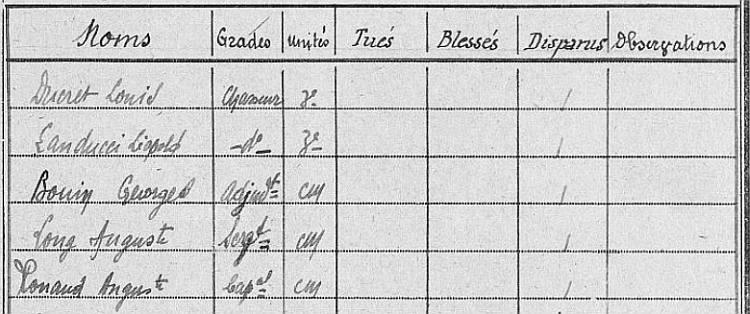 Noms Grades Unités Tués Blessés Disparus Observations
Ducret Louis Chasseur 7e 1
Landucci Léopold - do - 7e 1
Bouin Georges Adjudt CM 1
Long Auguste Sergt CM 1
Auguste Capal CM 1